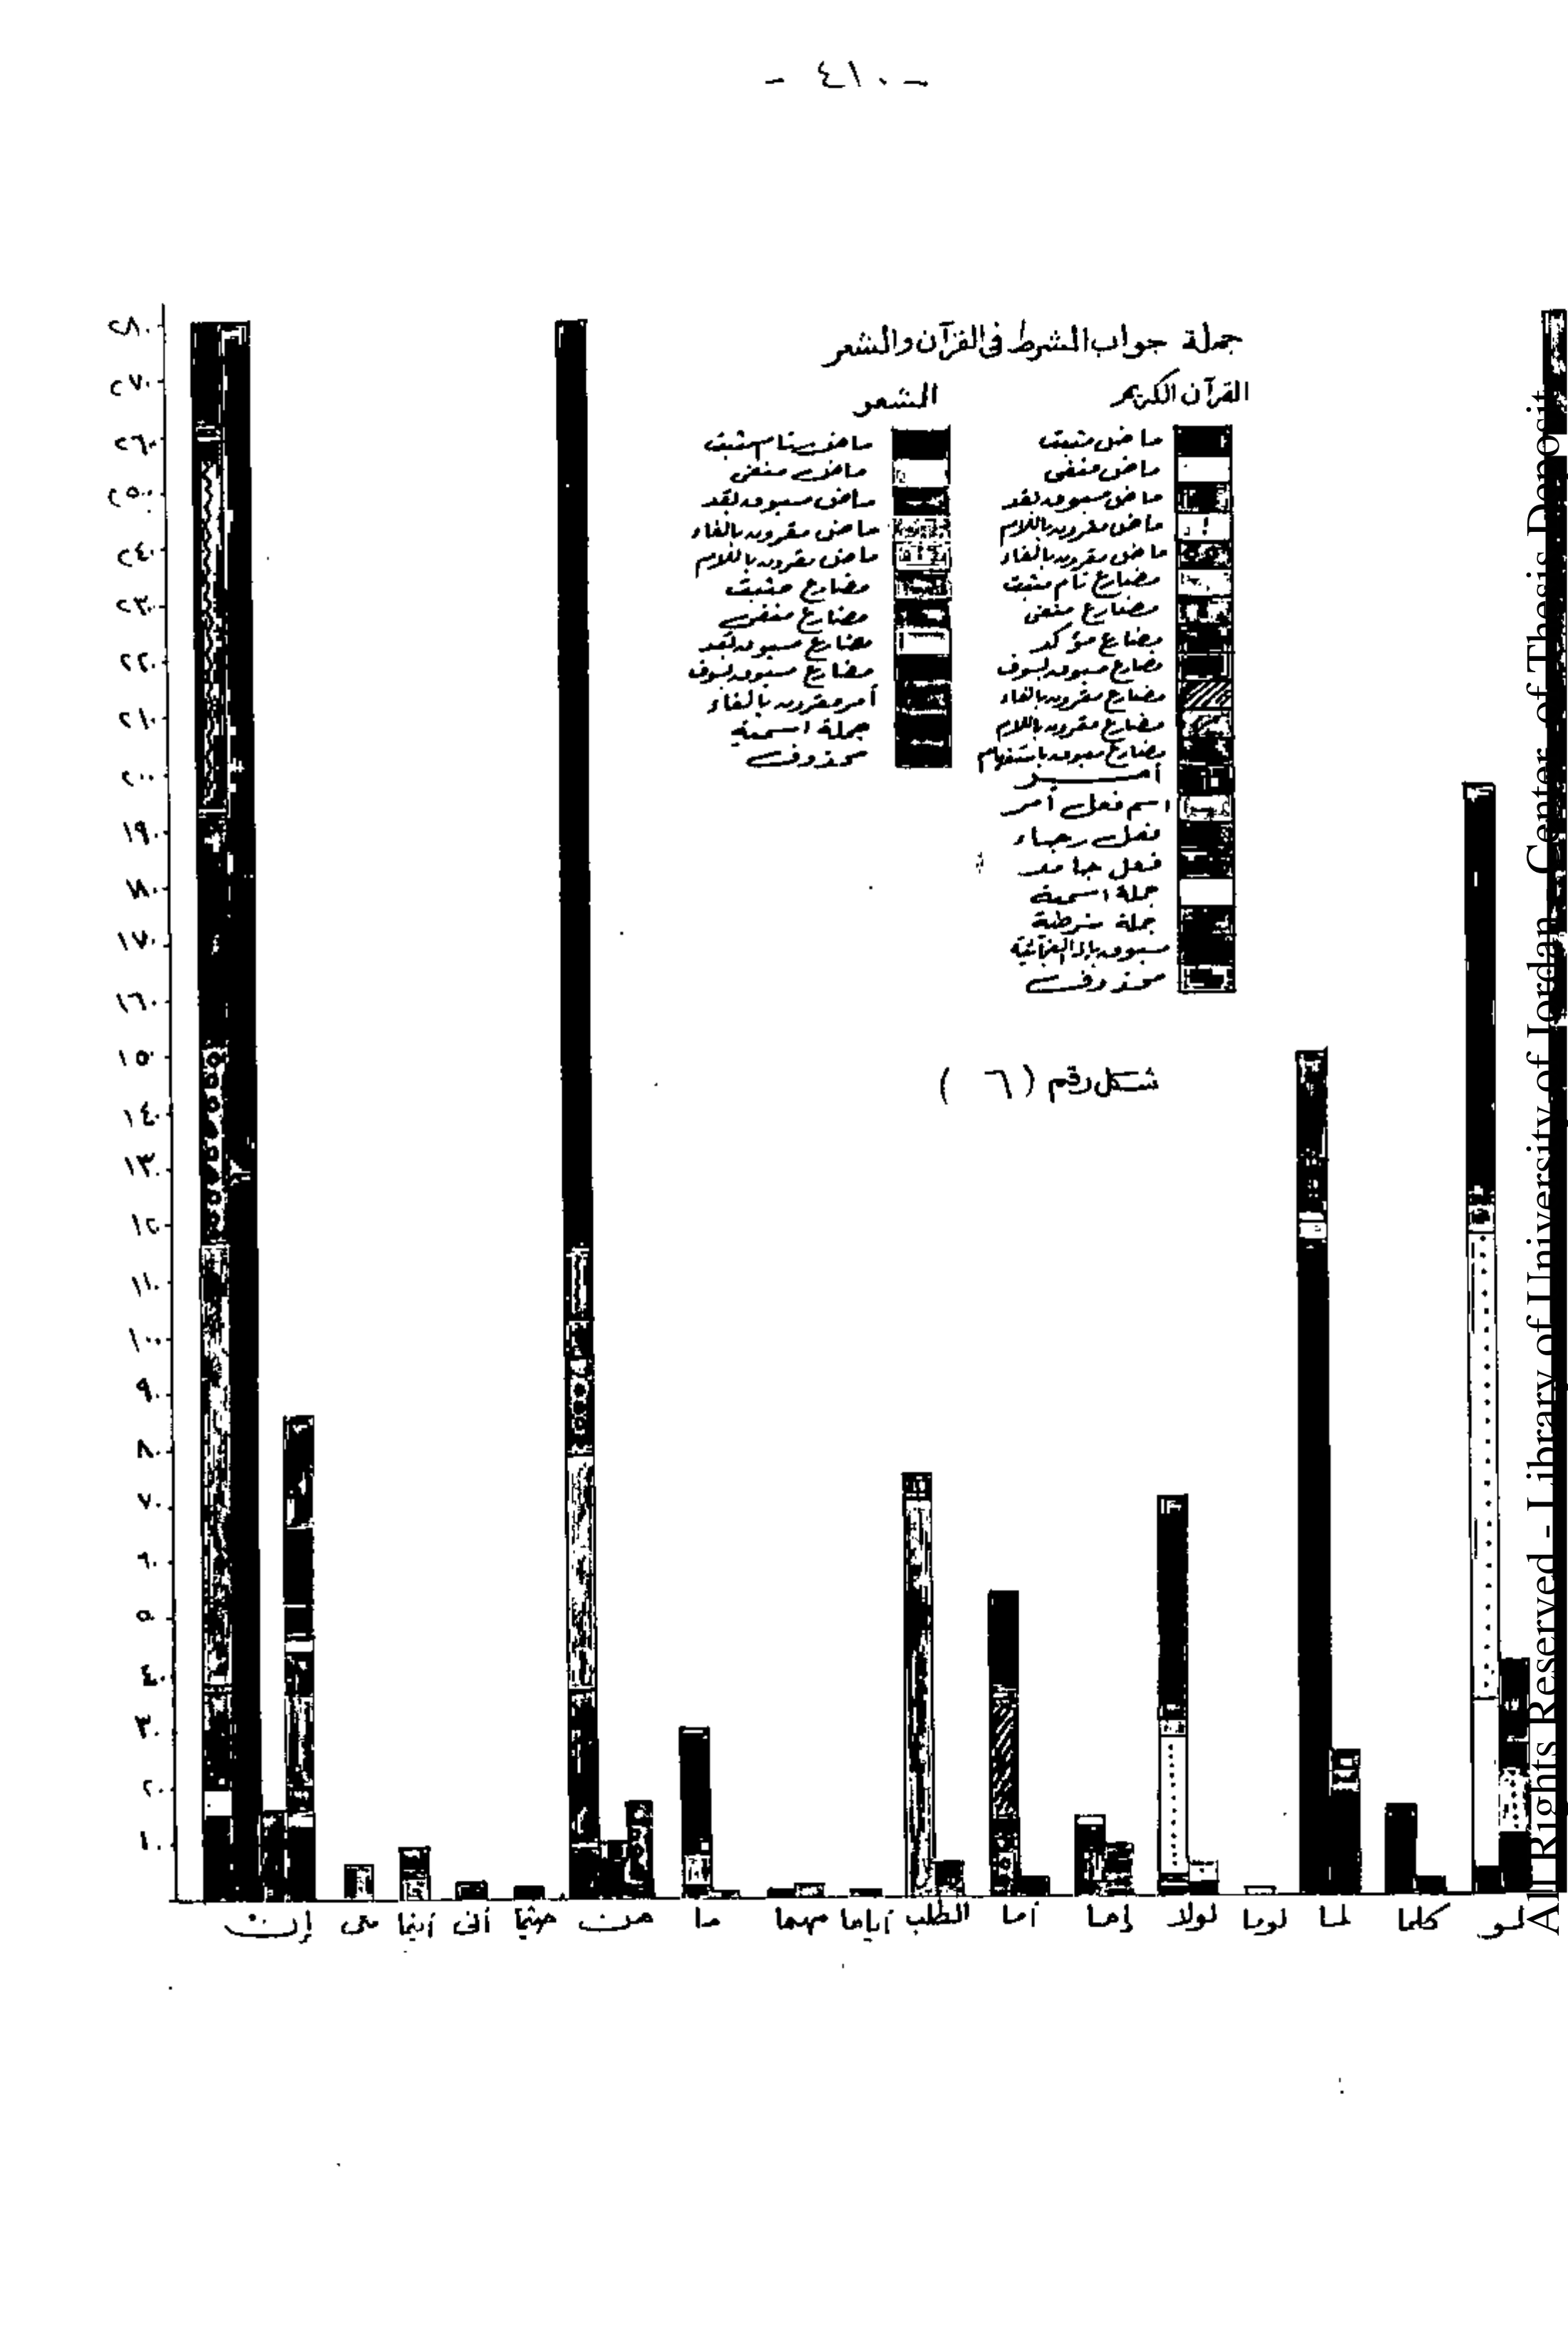 - ٤١٠ -
جملة جواب الشرط في القرآن والشعر
القرآن الكريم
ماض مثبت
ماض منفي
ماض مسبوق بقد
ماض مقرون باللام
ماض مقرون بالفاء
مضارع تام مثبت
مضارع منفي
مضارع مؤكد
مضارع مسبوق بسوف
مضارع مقرون بالفاء
مضارع مقرون باللام
مضارع مسبوق باستفهام
أمر
اسم فعل أمر
فعل رجاء
فعل جامد
جملة اسمية
جملة شرطية
مسبوق بإذا الفجائية
محذوف
الشعر
ماض تام مثبت
ماض منفي
ماض مسبوق بقد
ماض مقرون بالفاء
ماض مقرون باللام
مضارع مثبت
مضارع منفي
مضارع مسبوق بقد
مضارع مسبوق بسوف
أمر مقرون بالفاء
جملة اسمية
محذوف
شكل رقم ( ٦ )
٢٨٠
٢٧٠
٢٦٠
٢٥٠
٢٤٠
٢٣٠
٢٢٠
٢١٠
٢٠٠
١٩٠
١٨٠
١٧٠
١٦٠
١٥٠
١٤٠
١٣٠
١٢٠
١١٠
١٠٠
٩٠
٨٠
٧٠
٦٠
٥٠
٤٠
٣٠
٢٠
١٠
إن متى أينما أنى حيثما من ما مهما أياما الطلب أما إما لولا لوما لما كلما لو
All Rights Reserved - Library of University of Jordan - Center of Thesis Deposit